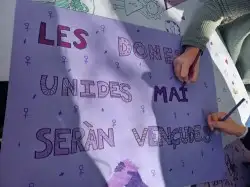 LES DONES
UNIDES MAÍ
SERÀN VENÇUDES